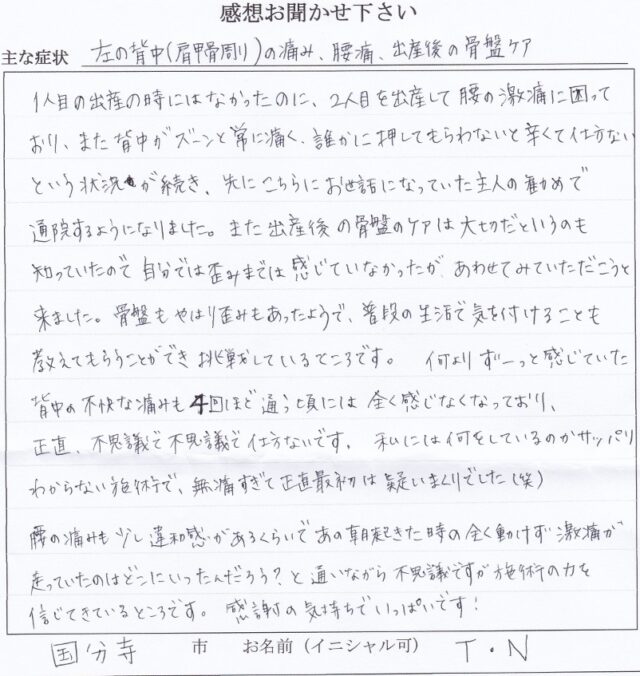 感想お聞かせ下さい
主な症状 左の背中(肩甲骨周り)の痛み、腰痛、出産後の骨盤ケア
1人目の出産の時にはなかったのに、2人目を出産して腰の激痛に困って
おり、また背中がズーンと常に痛く、誰かに押してもらわないと辛くて仕方ない
という状況が続き、先にこちらにお世話になっていた主人の勧めで
通院するようになりました。また出産後の骨盤のケアは大切だというのも
知っていたので自分では歪みまでは感じていなかったが、あわせてみていただこうと
来ました。骨盤もやはり歪みもあったようで、普段の生活で気を付けることも
教えてもらうことができ挑戦しているところです。 何よりずーっと感じていた
背中の不快な痛みも4回ほど通う頃には全く感じなくなっており、
正直、不思議で不思議で仕方ないです。 私には何をしているのかサッパリ
わからない施術で、無痛すぎて正直最初は疑いまくりでした(笑)
腰の痛みも少し違和感があるくらいであの朝起きた時の全く動けず激痛が
走っていたのはどこにいったんだろう?と通いながら不思議ですが施術の力を
信じてきているところです。感謝の気持ちでいっぱいです!
国分寺 市 お名前(イニシャル可) T・N